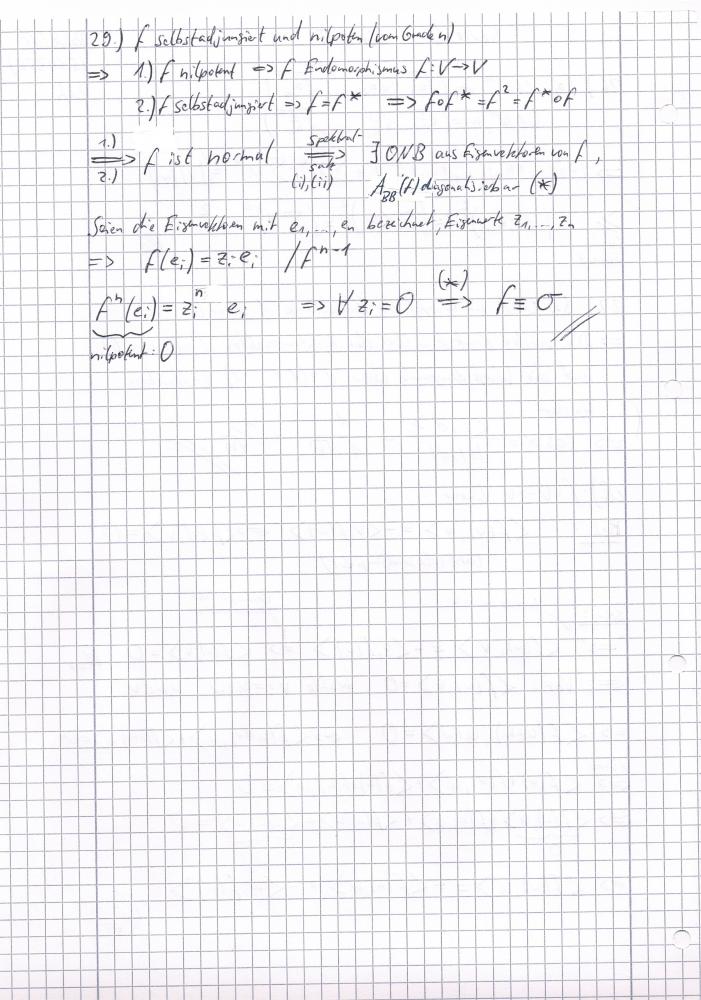 29.) f selbstadjungiert und nilpoten (vom Grade n)
=> 1.) f nilpotent => f Endomorphismus f: V→V
2.) f selbstadjungiert => f = f* => f∘f* = f² = f*∘f
1.) 2.) => f ist normal Spektralsatz (i),(ii) => ∃ ONB aus Eigenvektoren von f,
A_BB(f) diagonalisierbar (*)
Seien die Eigenvektoren mit e₁,...,eₙ bezeichnet, Eigenwerte z₁,...,zₙ
=> f(eᵢ) = zᵢ eᵢ / fⁿ⁻¹
fⁿ(eᵢ) = zᵢⁿ eᵢ => ∀ zᵢ = 0 (*) => f ≡ σ
nilpotent: 0